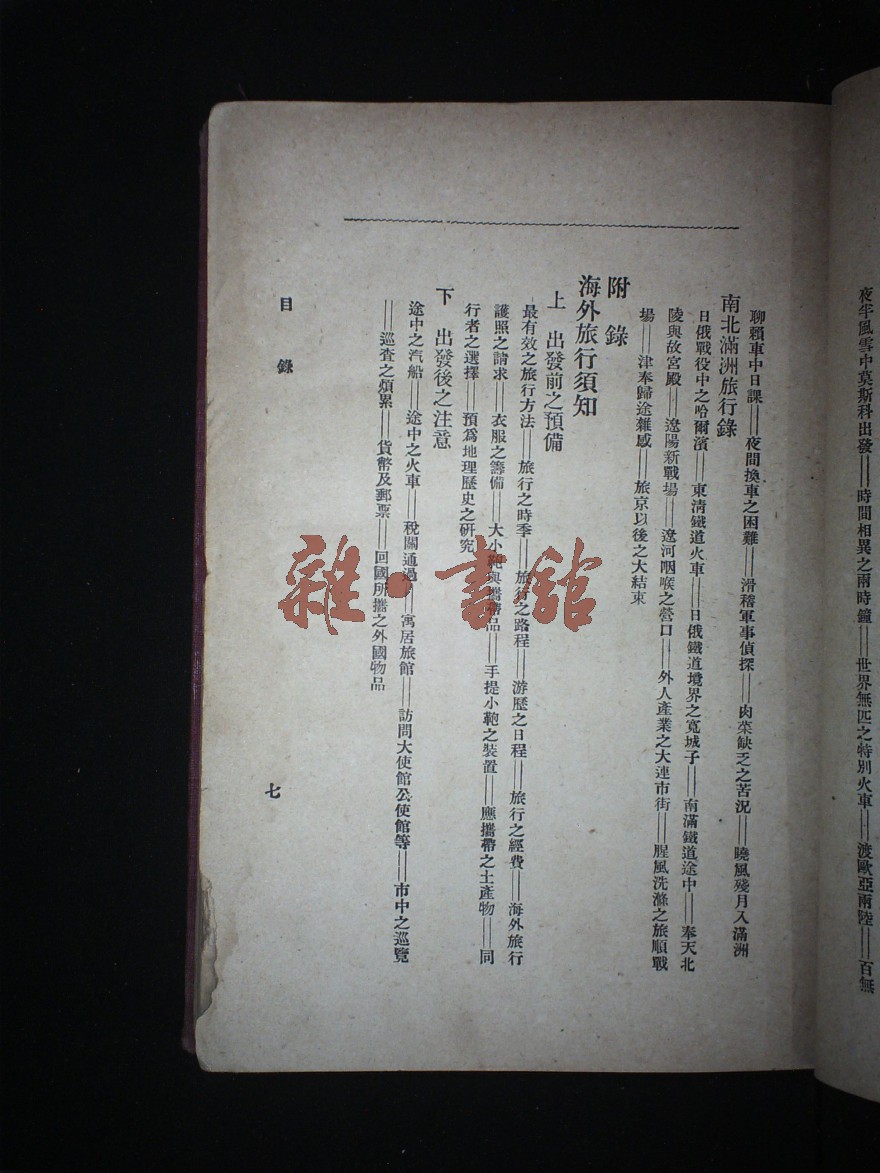 夜半風雪中莫斯科出發——時間相異之兩時鐘——世界無匹之特別火車——渡歐亞兩陸——百無
聊賴車中日課——夜間換車之困難——滑稽軍事偵探——肉菜缺乏之苦況——曉風殘月入滿洲
南北滿洲旅行錄
日俄戰役中之哈爾濱——東淸鐵道火車——日俄鐵道境界之寬城子——南滿鐵道途中——奉天北
陵與故宮殿——遼陽新戰場——遼河咽喉之營口——外人產業之大連市街——腥風洗滌之旅順戰
場——津奉歸途雜感——旅京以後之大結束
附錄
海外旅行須知
上 出發前之預備
最有效之旅行方法——旅行之時季——旅行之路程——游歷之日程——旅行之經費——海外旅行
護照之請求——衣服之籌備——大小鞄與攜帶品——手提小鞄之裝置——應攜帶之土產物——同
行者之選擇——預爲地理歷史之研究
下 出發後之注意
途中之汽船——途中之火車——稅關通過——寓居旅館——訪問大使館公使館等——市中之巡覽
——巡査之煩累——貨幣及郵票——回國所攜之外國物品
目錄
七
雜·書館